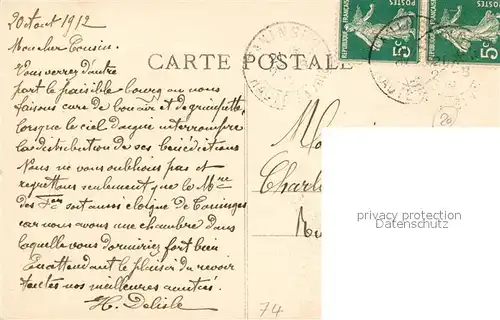 20 Aout 1912
Mon cher Cousin.
Vous verrez d'autre
part le paisible bourg ou nous
faisons cure de bon air et de grimpette,
lorsque le ciel daigne interrompre
la distribution de ses bénédictions
Nous ne vous oublions pas et
regrettons seulement que le Mre
des soit aussi éloigné de Taninges
car nous avons une chambre dans
laquelle vous dormiriez fort bien
En attendant le plaisir du revoir
toutes nos meilleures amitiés.
H. Delisle
CARTE POSTALE
REPUBLIQUE FRANÇAISE
5c
5c
M
Charl
privacy protection
Datenschutz
74